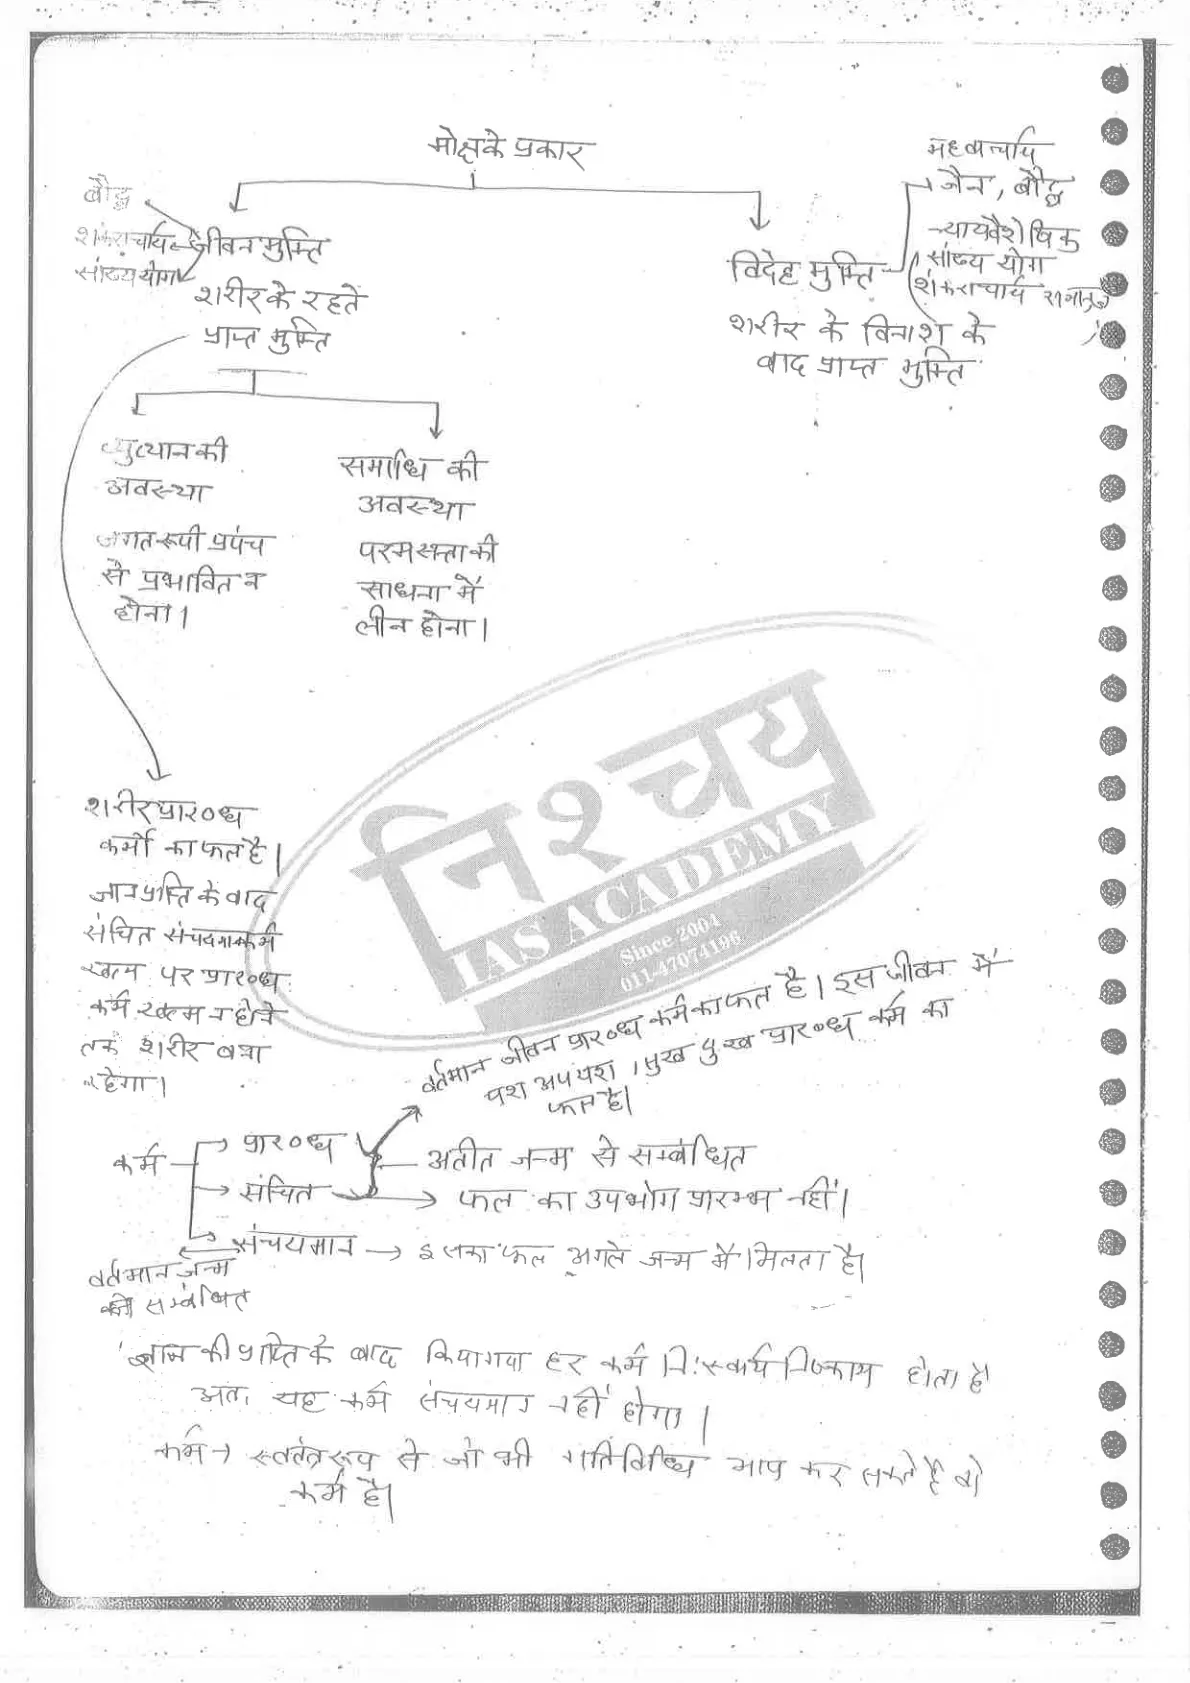 मोक्ष के प्रकार
बौद्ध
शंकराचार्य
सांख्य योग
जीवन मुक्ति
शरीर के रहते
प्राप्त मुक्ति
मध्वाचार्य
जैन, बौद्ध
न्यायवैशेषिक
सांख्य योग
शंकराचार्य रामानुज
विदेह मुक्ति
शरीर के विनाश के
बाद प्राप्त मुक्ति
व्युत्थान की
अवस्था
जगत रूपी प्रपंच
से प्रभावित न
होना।
समाधि की
अवस्था
परमसत्ता की
साधना में
लीन होना।
निश्चय
IAS ACADEMY
Since 2004
011-47074196
शरीर प्रारब्ध
कर्मों का फल है।
ज्ञान प्राप्ति के बाद
संचित संचयमान कर्म
खत्म पर प्रारब्ध
कर्म खत्म न होने
तक शरीर बना
रहेगा।
वर्तमान जीवन प्रारब्ध कर्म का फल है। इस जीवन में
यश अपयश, सुख दुःख प्रारब्ध कर्म का
फल है।
कर्म
प्रारब्ध
संचित
अतीत जन्म से सम्बंधित
फल का उपभोग प्रारम्भ नहीं।
संचयमान → इसका फल अगले जन्म में मिलता है।
वर्तमान जन्म
सम्बंधित
ज्ञान की प्राप्ति के बाद किया गया हर कर्म निःस्वार्थ निष्काम होता है
अतः यह कर्म संचयमान नहीं होगा।
कर्म → स्वतंत्र रूप से जो भी गतिविधि आप कर सकते हैं वो
कर्म है।